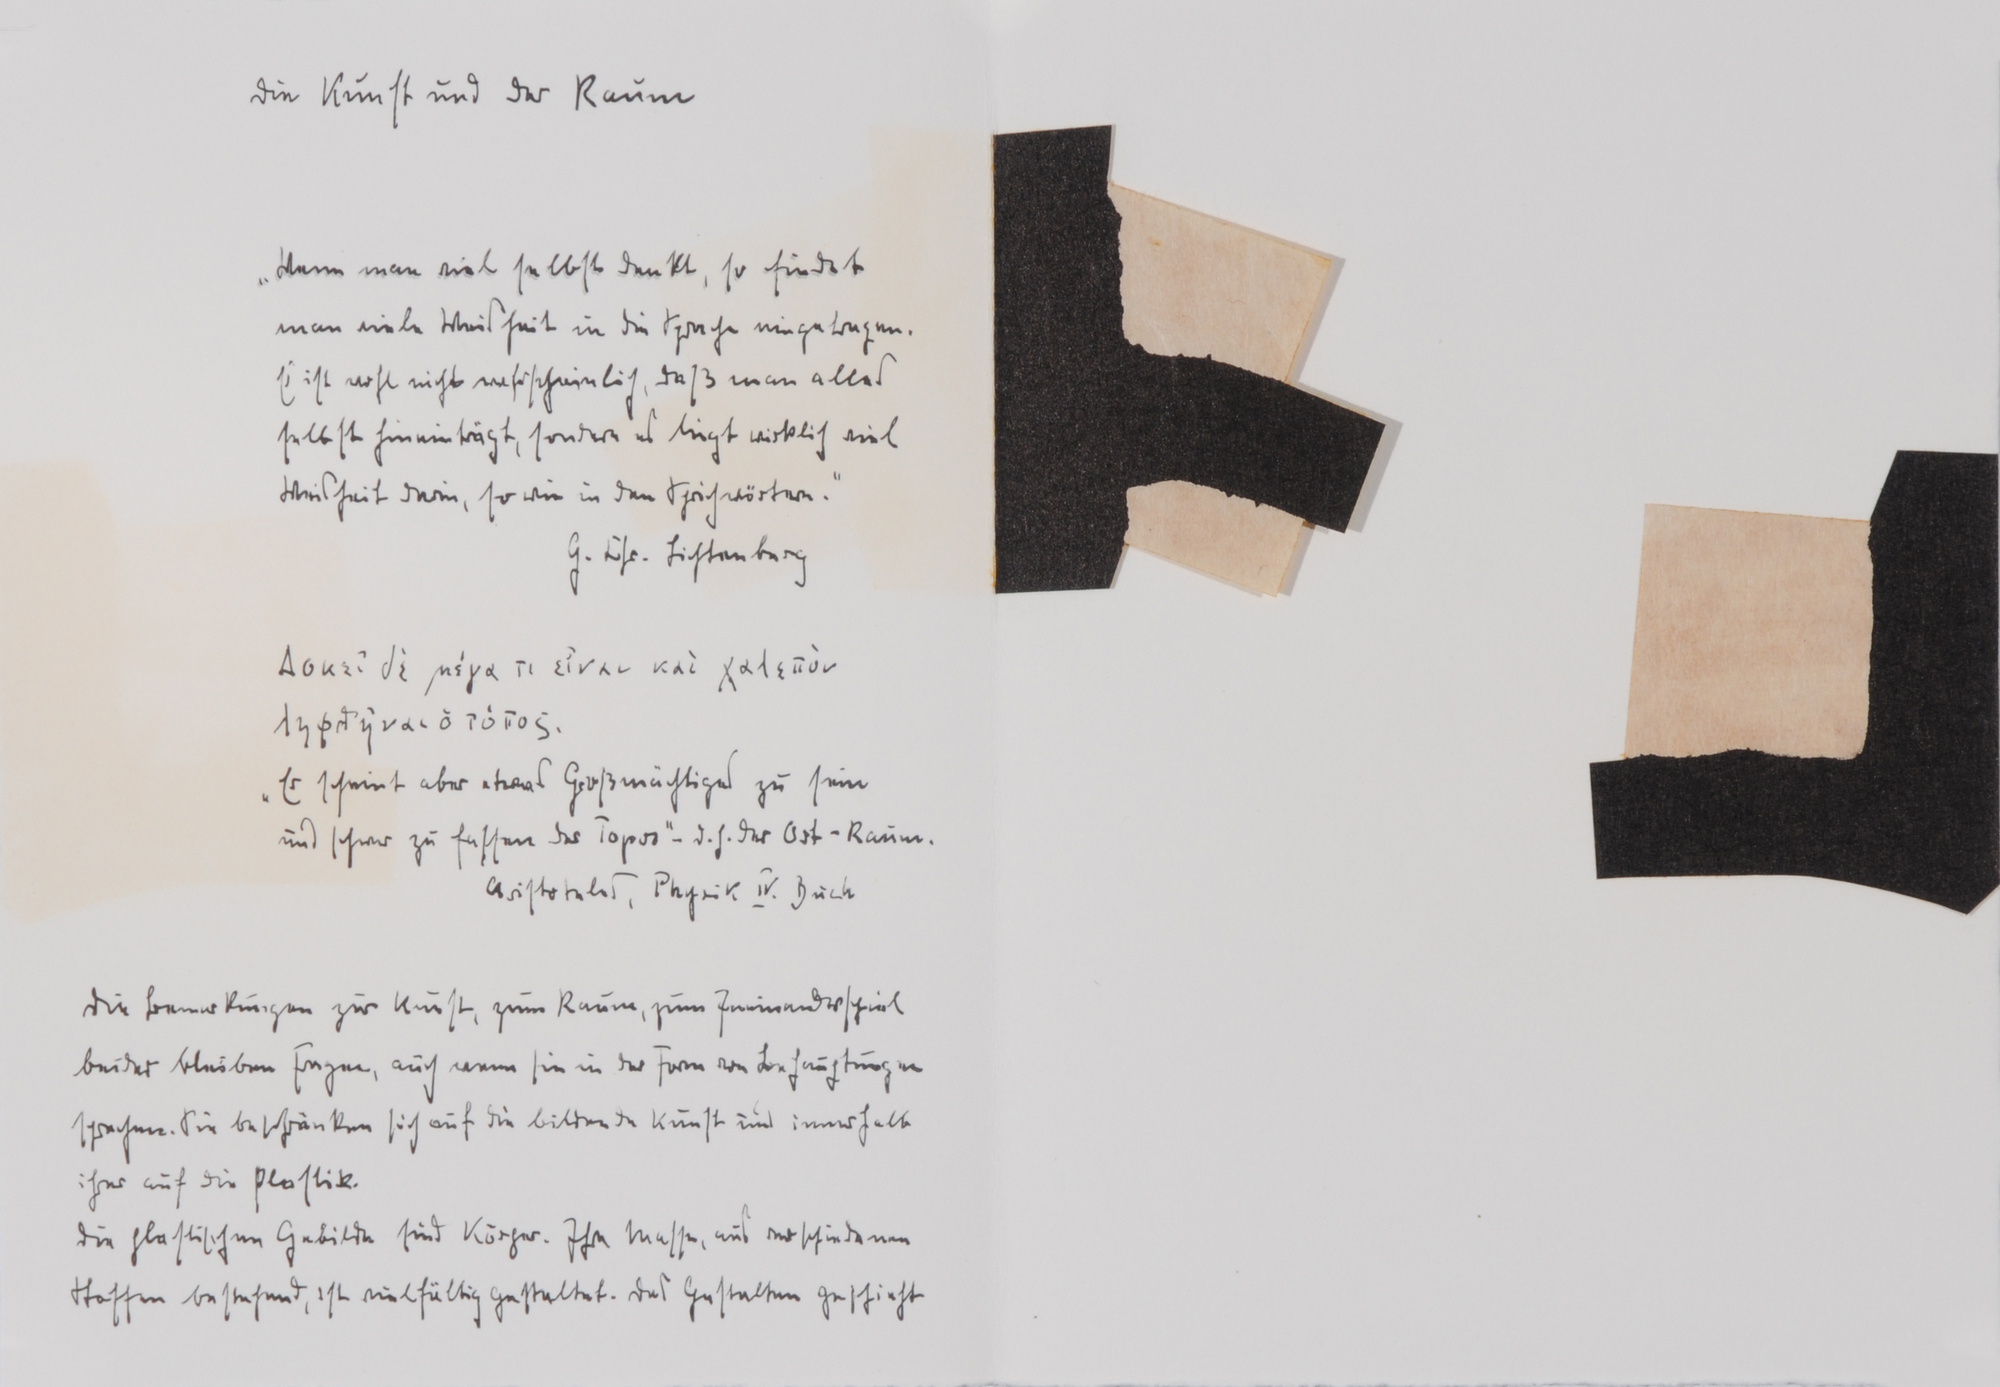 Die Kunst und der Raum
„Wenn man viel selbst denkt, so findet
man viele Weisheit in die Sprache eingetragen.
Es ist wohl nicht wahrscheinlich, daß man alles
selbst hineinträgt, sondern es liegt wirklich viel
Weisheit darin, so wie in den Sprichwörtern."
G. Chr. Lichtenberg
Δοκεῖ δὲ μέγα τι εἶναι καὶ χαλεπὸν
ληφθῆναι ὁ τόπος.
„Es scheint aber etwas Großmächtiges zu sein
und schwer zu fassen der Topos" - d.h. der Ort-Raum.
Aristoteles, Physik IV. Buch
Die Bemerkungen zur Kunst, zum Raum, zum Ineinanderspiel
beider bleiben Fragen, auch wenn sie in der Form von Behauptungen
sprechen. Sie beschränken sich auf die bildende Kunst und innerhalb
ihrer auf die Plastik.
Die plastischen Gebilde sind Körper. Ihre Masse, aus verschiedenen
Stoffen bestehend, ist vielfältig gestaltet. Das Gestalten geschieht